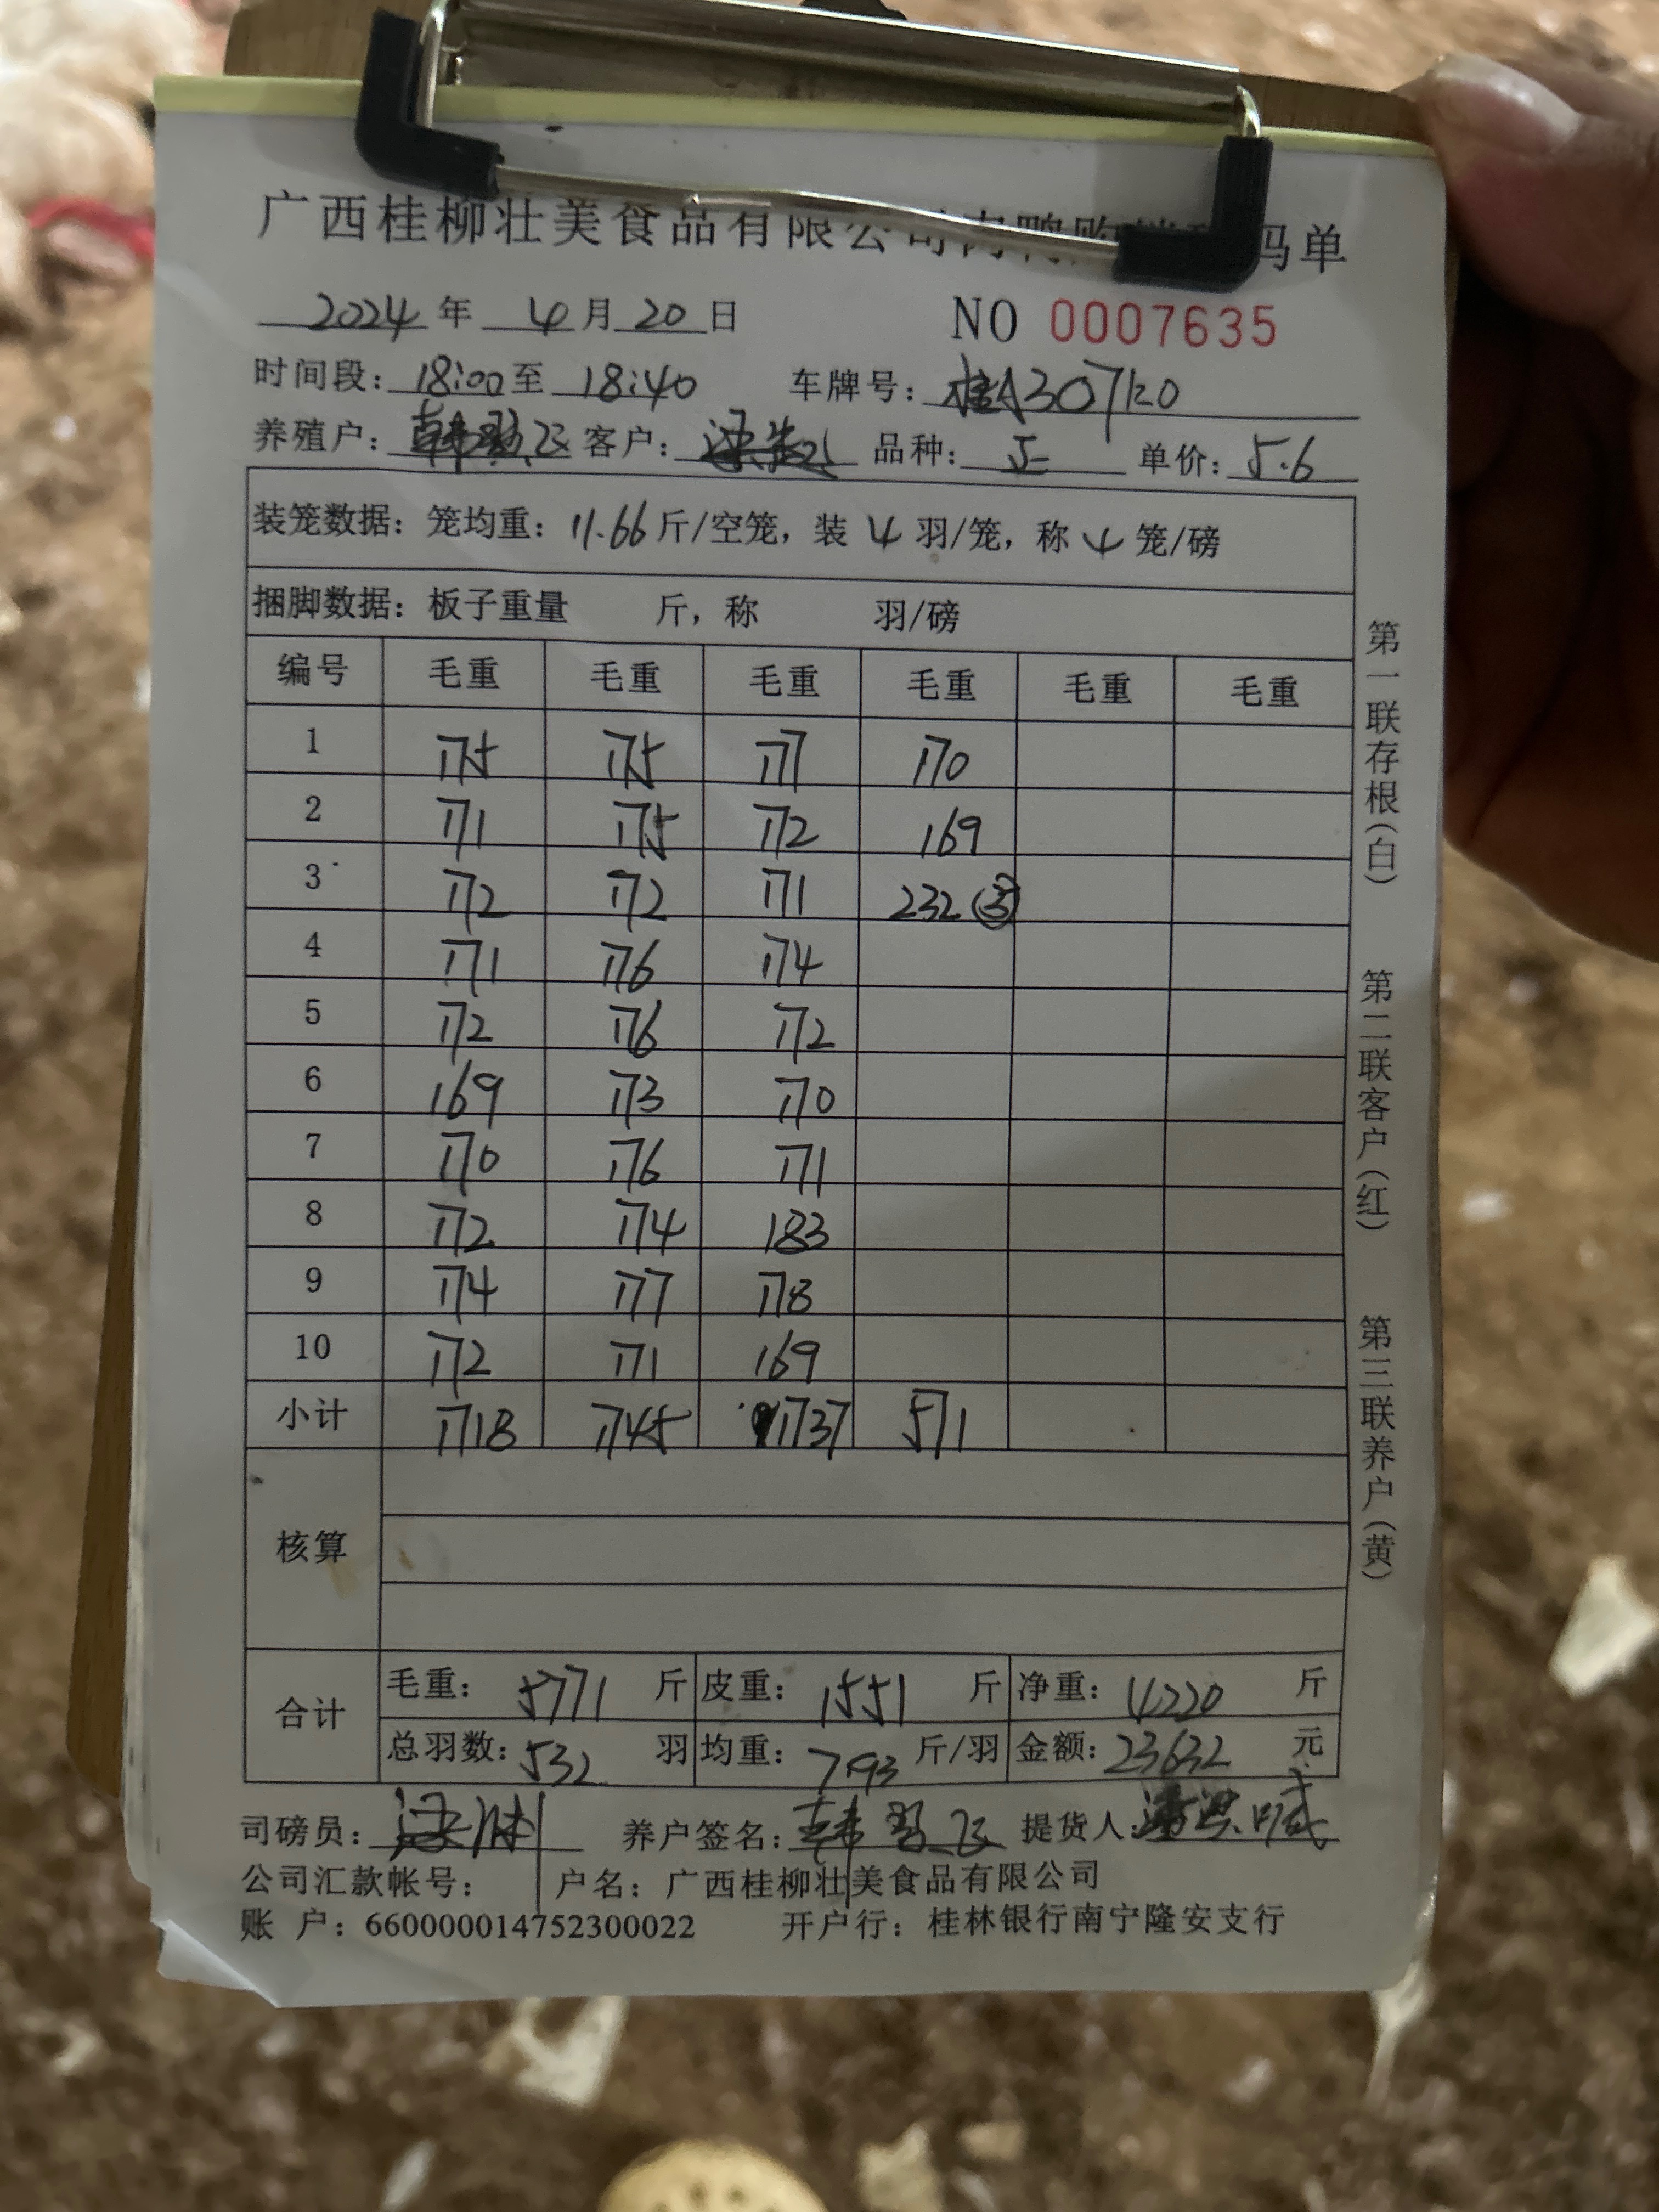 广西桂柳壮美食品有限公司肉鸭购销 码单
2024 年 4 月 20 日 NO 0007635
时间段: 18:00 至 18:40 车牌号: 桂A307K0
养殖户: 韩 飞 客户: 梁 品种: 单价: 5.6
装笼数据: 笼均重: 11.66 斤/空笼, 装 4 羽/笼, 称 4 笼/磅
捆脚数据: 板子重量 斤, 称 羽/磅
编号 毛重 毛重 毛重 毛重 毛重 毛重
1 175 175 177 170
2 171 175 172 169
3 172 172 171 232 (5)
4 171 176 174
5 172 176 172
6 169 173 170
7 170 176 171
8 172 174 183
9 174 177 178
10 172 171 169
小计 1718 1745 1737 571
核算
合计
毛重: 5771 斤 皮重: 1551 斤 净重: 4220 斤
总羽数: 532 羽 均重: 7.93 斤/羽 金额: 23632 元
司磅员: 养户签名: 韩 飞 提货人:
公司汇款帐号: 户名: 广西桂柳壮美食品有限公司
账 户: 660000014752300022 开户行: 桂林银行南宁隆安支行
第一联存根(白)
第二联客户(红)
第三联养户(黄)